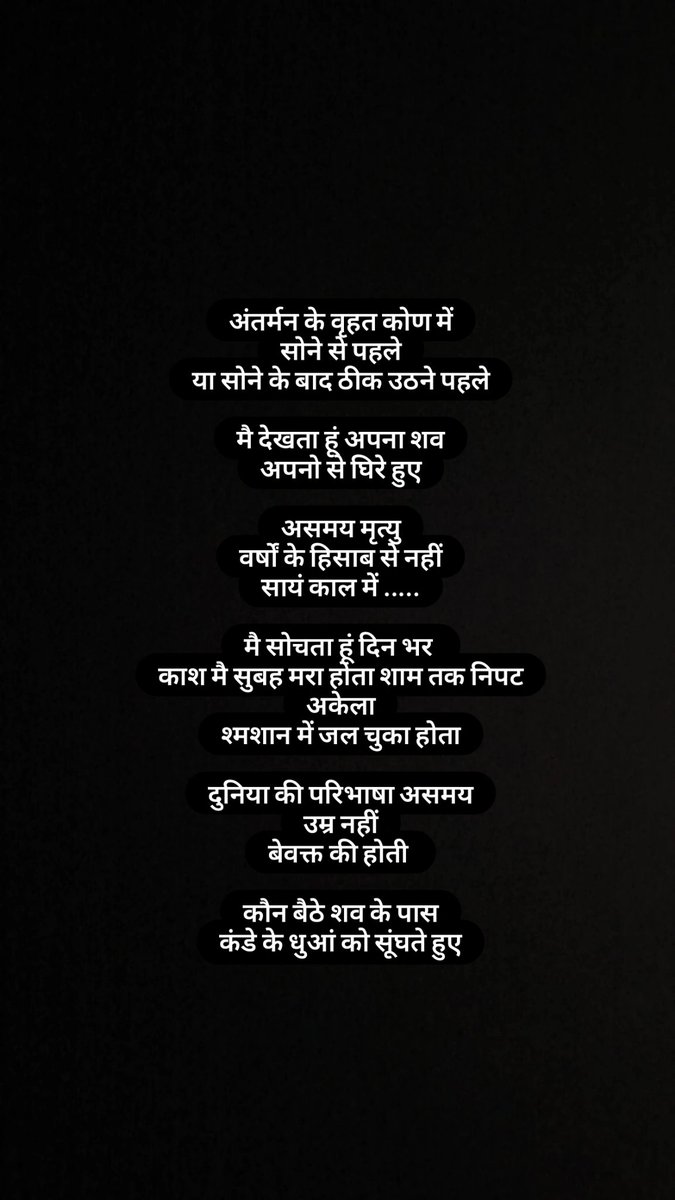 अंतर्मन के वृहत कोण में
सोने से पहले
या सोने के बाद ठीक उठने पहले
मै देखता हूं अपना शव
अपनो से घिरे हुए
असमय मृत्यु
वर्षों के हिसाब से नहीं
सायं काल में .....
मै सोचता हूं दिन भर
काश मै सुबह मरा होता शाम तक निपट
अकेला
श्मशान में जल चुका होता
दुनिया की परिभाषा असमय
उम्र नहीं
बेवक्त की होती
कौन बैठे शव के पास
कंडे के धुआं को सूंघते हुए